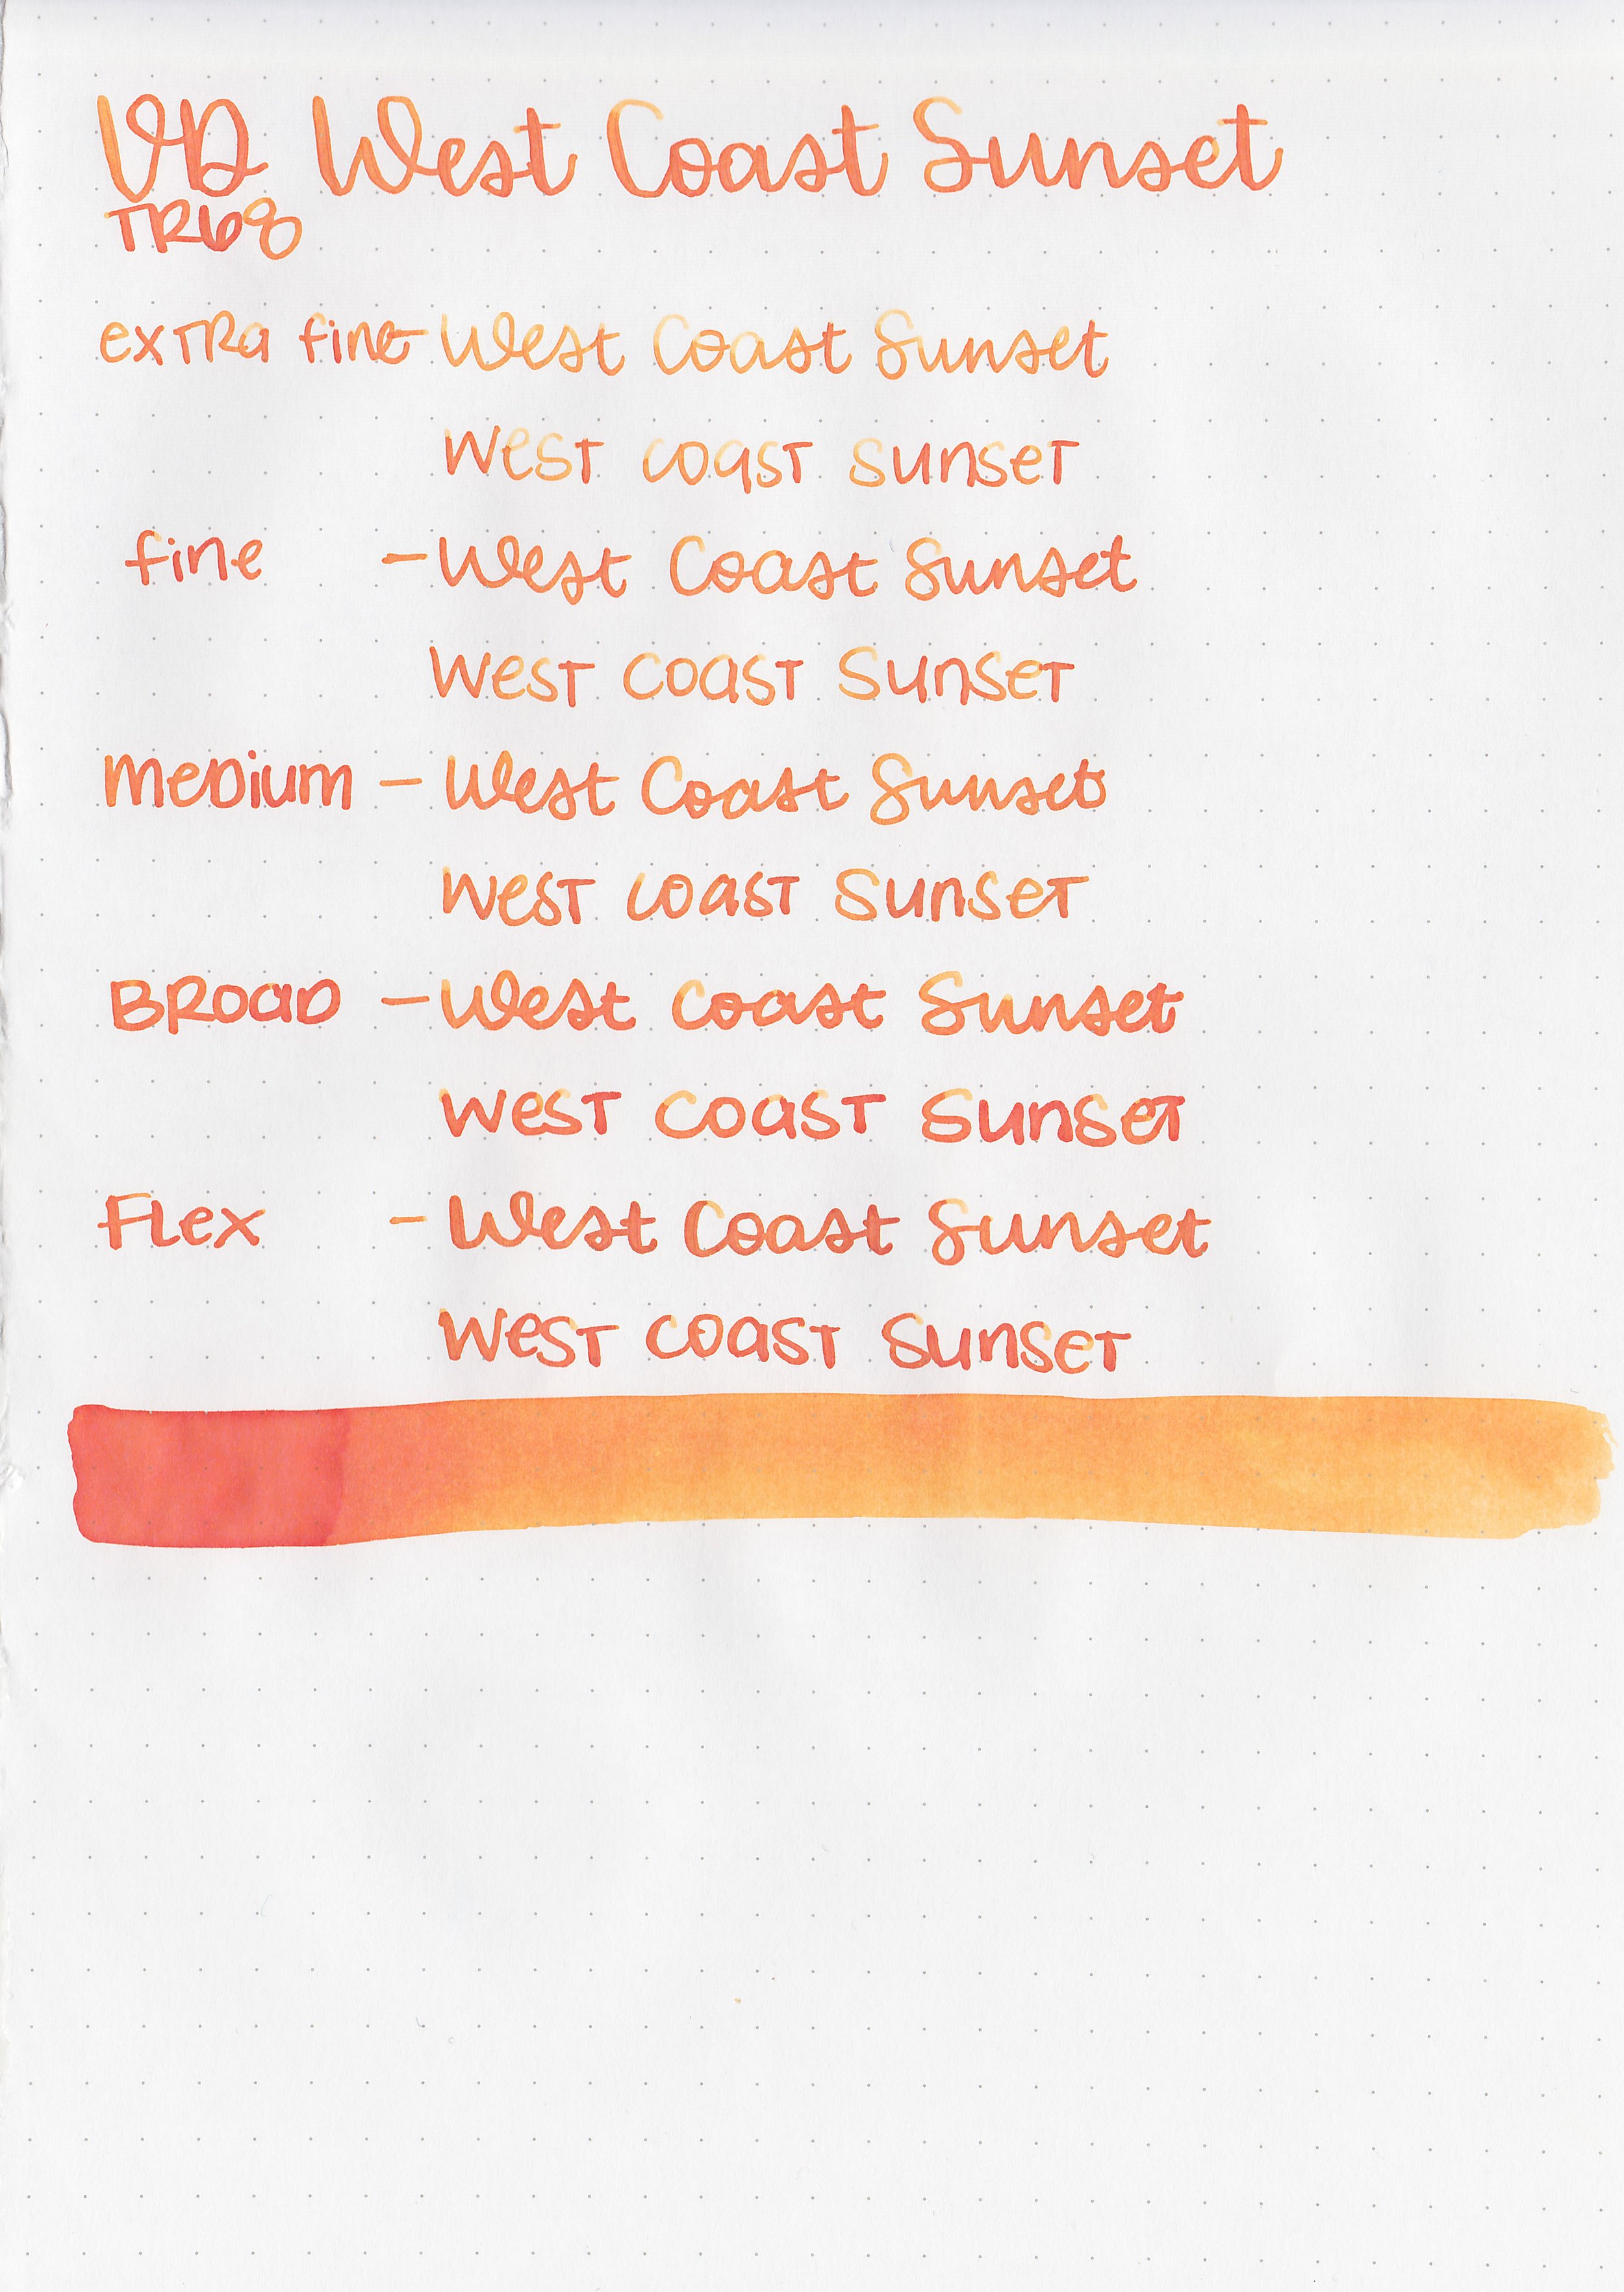 VD West Coast Sunset
TR68
extra fine - West Coast Sunset
West Coast Sunset
fine - West Coast Sunset
West Coast Sunset
Medium - West Coast Sunset
West Coast Sunset
Broad - West Coast Sunset
West Coast Sunset
Flex - West Coast Sunset
West Coast Sunset